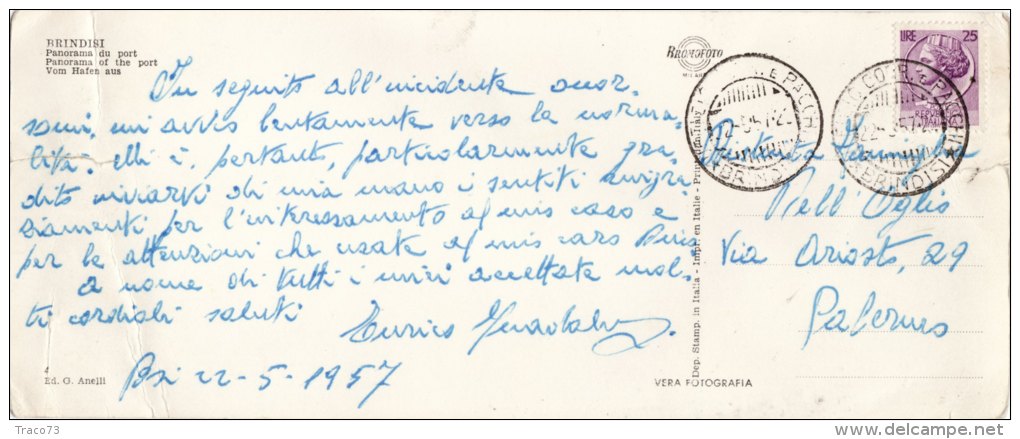 BRINDISI
Panorama du port
Panorama of the port
Vom Hafen aus
In seguito all'incidente occor-
somi, mi avvio lentamente verso la norma-
lità. Mi è, pertanto, particolarmente gra-
dito inviarvi di mia mano i sentiti ringra-
ziamenti per l'interessamento al mio caso e
per le attenzioni che usate al mio caro
a nome di tutti i miei accettate mol-
ti cordiali saluti
Enrico
Bsi 22-5-1957
4
Ed. G. Anelli
Dep. Stamp. in Italia - Impr. en Italie - Printed in Italy
VERA FOTOGRAFIA
BROMOFOTO
MILANO
LIRE 25
BRINDISI
Famiglia
Dell'Oglio
Via Ariosto, 29
Palermo
Traco73
www.delcampe.net